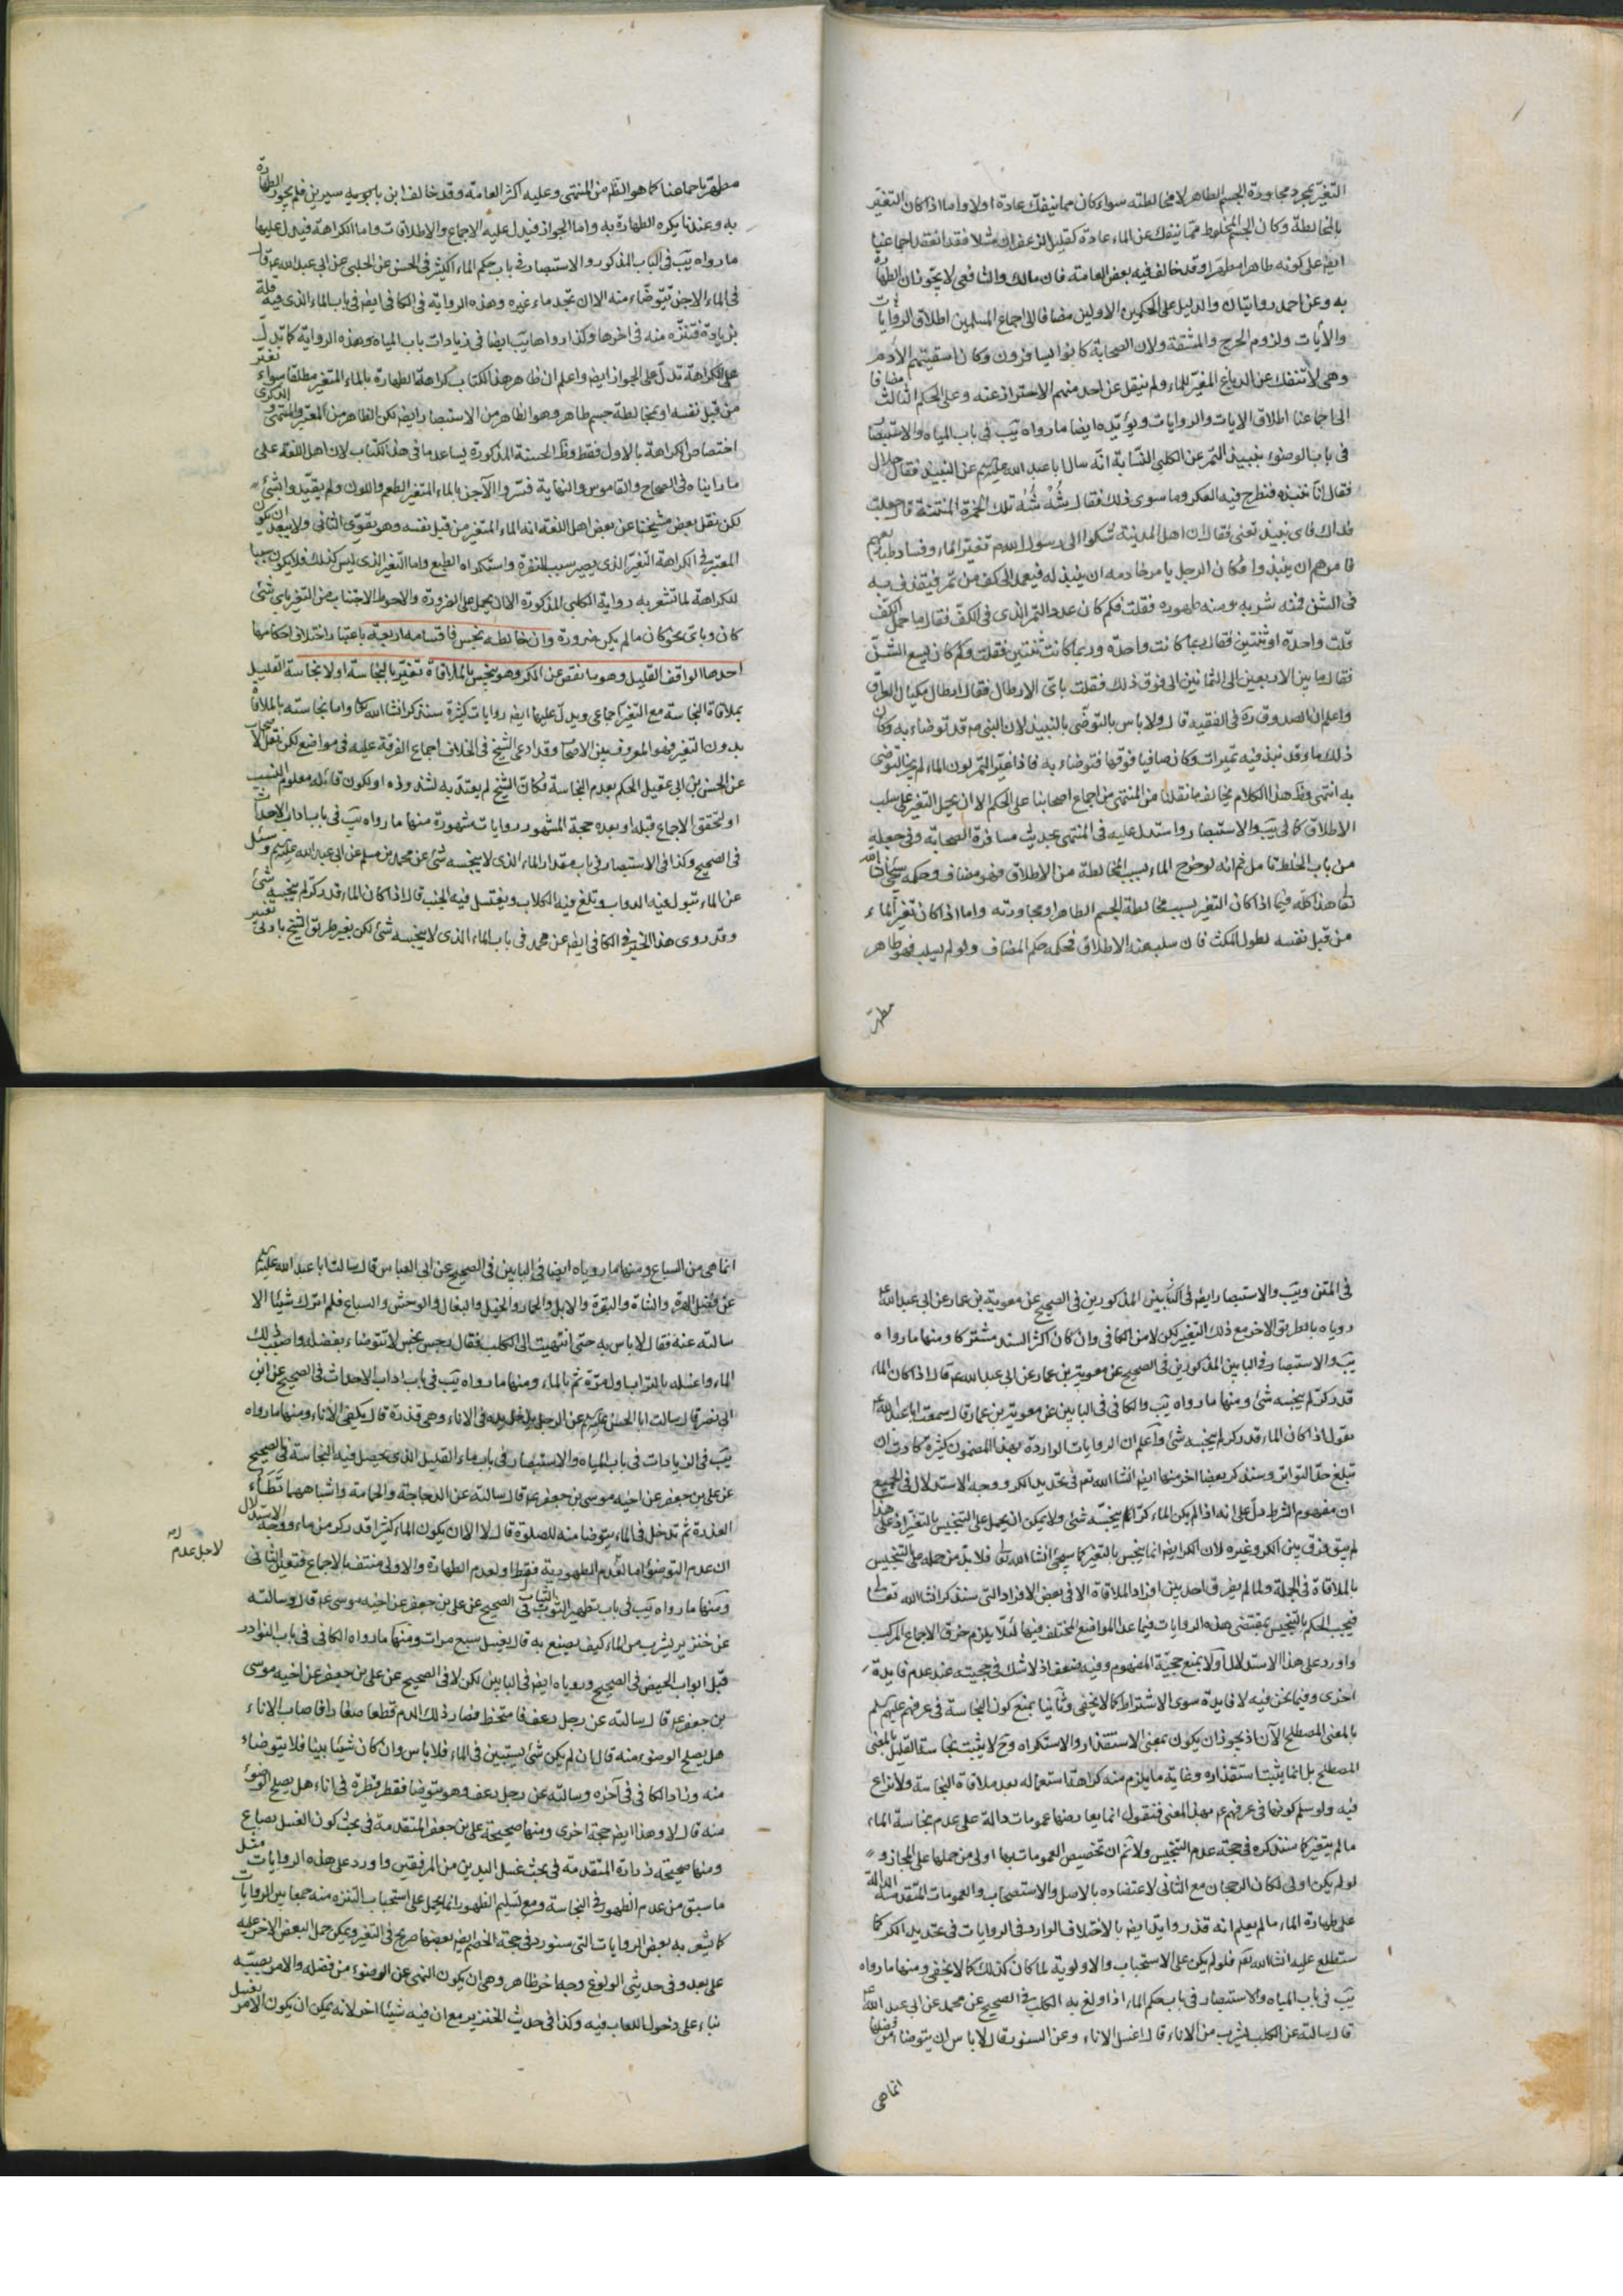 التغيّر بمجرد مجاورة الجسم الطاهر لا مخالطته سواء كان مما ينفك عادة اولا واما اذا كان التغيّر
بالمخالطة وكان الجسم المخلوط مما ينفك عن الماء عادة كقليل الزعفران مثلا فقد انعقد اجماعنا
ايضا على كونه طاهرا مطهرا وقد خالف فيه بعض العامة فان مالك والشافعي لا يجوزان الطهارة
به وعن احمد روايتان والدليل على الحكمين الاولين مضافا الى اجماع المسلمين اطلاق الروايات
والآيات ولزوم الحرج والمشقة ولان الصحابة كانوا يسافرون وكان اسقيتهم الأدم
وهي لا تنفك عن الدباغ المغيّر للماء ولم ينقل عن احد منهم الاحتراز عنه وعلى الحكم الثالث مضافا
الى اجماعنا اطلاق الايات والروايات ويؤيده ايضا ما رواه يب في باب المياه والاستبصار
في باب الوضوء بنبيذ التمر عن الكلبي النسابة انه سال ابا عبد الله عليه السلم عن النبيذ فقال حلال
فقال انا ننبذه فنطرح فيه العكر وما سوى ذلك فقال شُه شُه تلك الخمرة المنتنة قال جعلت
فداك فاي نبيذ تعني فقال ان اهل المدينة شكوا الى رسول الله ص تغيّر الماء وفساد طبائعهم
فامرهم ان ينبذوا فكان الرجل يامر خادمه ان ينبذ له فيعمد الى كف من تمر فيقذف به
في الشن فمنه شربه ومنه طهوره فقلت فكم كان عدد التمر الذي في الكفّ فقال ما حمل الكفّ
قلت واحدة او ثنتين فقال ربما كانت واحدة وربما كانت ثنتين فقلت وكم كان يسع الشنّ
فقال ما بين الاربعين الى الثمانين الى فوق ذلك فقلت باي الارطال فقال ارطال مكيال العراق
واعلم ان الصدوق ره في الفقيه قال ولا باس بالتوضّي بالنبيذ لان النبي ص قد توضاء به وكان
ذلك ماء قد نبذ فيه تميرات وكان صافيا فوقها فتوضاء به فاذا غيّر التمر لون الماء لم يجز التوضي
به انتهى وظ هذا الكلام يخالف ما نقلنا من المنتهى من اجماع اصحابنا على الحكم الا ان يحمل التغير على سلب
الاطلاق كما في يب والاستبصار واستدل عليه في المنتهى بحديث مسافرة الصحابة وفي جعله
من باب الخلط تامل ثم انه لو خرج الماء بسبب المخالطة من الاطلاق فهو مضاف وحكمه سيجئ انشاء الله
تعا هذا كله فيما اذا كان التغير بسبب مخالطة الجسم الطاهر او مجاورته واما اذا كان تغير الماء
من قبل نفسه لطول المكث فان سلب عنه الاطلاق فحكمه حكم المضاف ولو لم يسلب فهو طاهر
مطهر
مطهّر باجماعنا كما هو الظ من المنتهى وعليه اكثر العامة وقد خالف ابن سيرين فلم يجوز الطهارة
به وعندنا يكره الطهارة به واما الجواز فيدل عليه الاجماع والاطلاقات واما الكراهة فيدل عليها
ما رواه يب في الباب المذكور والاستبصار في باب حكم الماء الكثير في الحسن عن الحلبي عن ابي عبد الله ع قال
في الماء الاجن تتوضاء منه الا ان تجد ماء غيره وهذه الرواية في الكافي ايضا في باب الماء الذي فيه قلة
بزيادة فتنزه منه في اخرها وكذا رواها يب ايضا في زيادات باب المياه وهذه الرواية كما تدلّ
على الكراهة تدل على الجواز ايضا واعلم ان ظاهر هذا الكتاب كراهة الطهارة بالماء المتغير مطلقا سواء تغيّر
من قبل نفسه او بمخالطة جسم طاهر وهو الظاهر من الاستبصار ايضا لكن الظاهر من المعتبر والمنتهى والذكرى
اختصاص الكراهة بالاول فقط وظ الحسنة المذكورة يساعد ما في هذا الكتاب لان اهل اللغة على
ما راينا في الصحاح والقاموس والنهاية فسّروا الآجن بالماء المتغير الطعم واللون ولم يقيّدوا بشئ
لكن نقل بعض مشيختنا عن بعض اهل اللغة انه الماء المتغير من قبل نفسه وهو يقوّي الثاني ولا يبعد ان يكون
المعتبر في الكراهة التغيّر الذي يصير سبب النفرة واستكراه الطبع واما التغير الذي ليس كذلك فلا يكون سببا
للكراهة لما تشعر به رواية الكلبي المذكورة الا ان يحمل على الضرورة والاحوط الاجتناب من التغير باي شئ
كان وباي نحو كان ما لم يكن ضرورة وان خالطه نجس فاقسامه اربعة باعتبار اختلاف احكامها
احدها الواقف القليل وهو ما نقص عن الكر وهو ينجس بالملاقاة تغيّر بالنجاسة اولا نجاسة القليل
بملاقاة النجاسة مع التغير اجماعي ويدل عليها ايضا روايات كثيرة سنذكر انشا الله تعا واما نجاسته بالملاقاة
بدون التغير فهو المعروف بين الاصحاب وقد ادعى الشيخ في الخلاف اجماع الفرقة عليه في مواضع لكن نقل
عن الحسن بن ابي عقيل الحكم بعدم النجاسة فكان الشيخ لم يعتدّ به لشذوذه او يكون قائله معلوم النسب
او لتحقق الاجماع قبله او بعده حجة المشهور روايات مشهورة منها ما رواه يب في باب اداب الاحداث
في الصحيح وكذا في الاستبصار في باب مقدار الماء الذي لا ينجسه شئ عن محمد بن مسلم عن ابي عبد الله عليه السلم وسئل
عن الماء تبول فيه الدواب وتلغ فيه الكلاب ويغتسل فيه الجنب قال اذا كان الماء قدر كرّ لم ينجسه شئ
وقد روى هذا الخبر في الكافي ايضا عن محمد في باب الماء الذي لا ينجسه شئ لكن بغير طريق الشيخ بادنى تغيير
في المتن ويب والاستبصار ايضا في البابين المذكورين في الصحيح عن معوية بن عمار عن ابي عبد الله ع
روياه بالطريق الاخر مع ذلك التغيير لكن لا من الكافي وان كان اكثر السند مشتركا ومنها ما رواه
يب والاستبصار في البابين المذكورين في الصحيح عن معوية بن عمار عن ابي عبد الله ع قال اذا كان الماء
قدر كرّ لم ينجسه شئ ومنها ما رواه يب والكافي في البابين عن معوية بن عمار قال سمعت ابا عبد الله ع
يقول اذا كان الماء قدر كر لم ينجسه شئ واعلم ان الروايات الواردة بهذا المضمون كثيرة كادت ان
تبلغ حدّ التواتر وسنذكر بعضا اخر منها ايضا انشا الله تعا في تحديد الكر ووجه الاستدلال في الجميع
ان مفهوم الشرط دلّ على انه اذا لم يكن الماء كرّا لم ينجسه شئ ولا يمكن ان يحمل على التنجيس بالتغير اذ على هذا
لم يبق فرق بين الكر وغيره لان الكر ايضا انما ينجس بالتغير كما سيجئ انشا الله تعا فلا بدّ من حمله على التنجيس
بالملاقاة في الجملة ولما لم يفرق احد بين افراد الملاقاة الا في بعض الافراد التي سنذكر انشا الله تعا
فيجب الحكم بالتنجيس بمقتضى هذه الروايات فيما عدا المواضع المختلف فيها لئلا يلزم خرق الاجماع المركب
واورد على هذا الاستدلال اولا بمنع حجيّة المفهوم وفيه ضعف اذ لا شك في حجيته عند عدم فايدة
اخرى وفيما نحن فيه لا فايدة سوى الاشتراط كما لا يخفى وثانيا بمنع كون النجاسة في عرفهم عليهم السلم
بالمعنى المصطلح الآن اذ يجوز ان يكون بمعنى الاستقذار والاستكراه وح لا يثبت نجاسة القليل بالمعنى
المصطلح بل انما يثبت استقذاره وغاية ما يلزم منه كراهة استعماله بعد ملاقاة النجاسة ولا نزاع
فيه ولو سلم كونها في عرفهم ع بهذا المعنى فنقول انما يعارضها عمومات دالة على عدم نجاسة الماء
ما لم يتغير كما سنذكره في حجة عدم التنجيس ولا ثم ان تخصيص العمومات بها اولى من حملها على المجاز و
لو لم يكن اولى لكان الرجحان مع الثاني لاعتضاده بالاصل والاستصحاب والعمومات المتقدمة الدالة
على طهارة الماء ما لم يعلم انه قذر وايّد ايضا بالاختلاف الوارد في الروايات في تحديد الكر كما
ستطلع عليه انشا الله تعا فلو لم يكن على الاستحباب والاولوية لما كان كذلك كما لا يخفى ومنها ما رواه
يب في باب المياه والاستبصار في باب حكم الماء اذا ولغ به الكلب في الصحيح عن محمد عن ابي عبد الله ع
قال سالته عن الكلب يشرب من الاناء قال اغسل الاناء وعن السنور قال لا باس ان يتوضا من فضلها
انما هي
انما هي من السباع ومنها ما روياه ايضا في البابين في الصحيح عن ابي العباس قال سالت ابا عبد الله عليه السلم
عن فضل الهرة والشاة والبقرة والابل والحمار والخيل والبغال والوحش والسباع فلم اترك شيئا الا
سالته عنه فقال لا باس به حتى انتهيت الى الكلب فقال رجس نجس لا تتوضاء بفضله واصبب ذلك
الماء واغسله بالتراب اول مرّة ثم بالماء ومنها ما رواه يب في باب اداب الاحداث في الصحيح عن ابن
ابي نصر قال سالت ابا الحسن عليه السلم عن الرجل يدخل يده في الاناء وهي قذرة قال يكفي الاناء ومنها ما رواه
يب في الزيادات في باب المياه والاستبصار في باب ماء القليل الذي يحصل فيه النجاسة في الصحيح
عن علي بن جعفر عن اخيه موسى بن جعفر ع قال سالته عن الدجاجة والحمامة واشباههما تطاء
العذرة ثم تدخل في الماء يتوضا منه للصلوة قال لا الا ان يكون الماء كثيرا قدر كر من ماء ووجه الاستدلال
ان عدم التوضئ اما لعدم الطهورية فقط او لعدم الطهارة والاولى منتف بالاجماع فتعين الثاني
لاجل عدم
ومنها ما رواه يب في باب تطهير الثياب في الصحيح عن علي بن جعفر عن اخيه موسى ع قال وسالته
عن خنزير يشرب من الماء كيف يصنع به قال يغسل سبع مرات ومنها ما رواه الكافي في باب النوادر
قبل ابواب الحيض في الصحيح وروياه ايضا في البابين لكن لا في الصحيح عن علي بن جعفر عن اخيه موسى
بن جعفر ع قال سالته عن رجل رعف فامتخط فصار ذلك الدم قطعا صغارا فاصاب الاناء
هل يصلح الوضوء منه قال ان لم يكن شئ يستبين في الماء فلا باس وان كان شيئا بينا فلا يتوضاء
منه وزاد الكافي في آخره وسالته عن رجل رعف وهو يتوضا فقطر قطرة في اناءه هل يصلح الوضوء
منه قال لا وهذا ايضا حجة اخرى ومنها صحيحة علي بن جعفر المتقدمة في بحث كون الغسل بصاع
ومنها صحيحة زرارة المتقدمة في بحث غسل اليدين من المرفقين واورد على هذه الروايات مثل
ما سبق من عدم الظهور في النجاسة ومع تسليم الظهور انما يحمل على استحباب التنزه منه جمعا بين الروايات
كما يشعر به بعض الروايات التي سنورد في حجة الخصم ايضا بعضها صريح في التغير ويمكن حمل البعض الاخر عليه
على بعد وفي حديثي الولوغ وجه اخر ظاهر وهي ان يكون النهي عن الوضوء من فضله والامر بصبّه
بناء على دخول اللعاب فيه وكذا في حديث الخنزير مع ان فيه شيئا اخر لانه يمكن ان يكون الامر بغسل